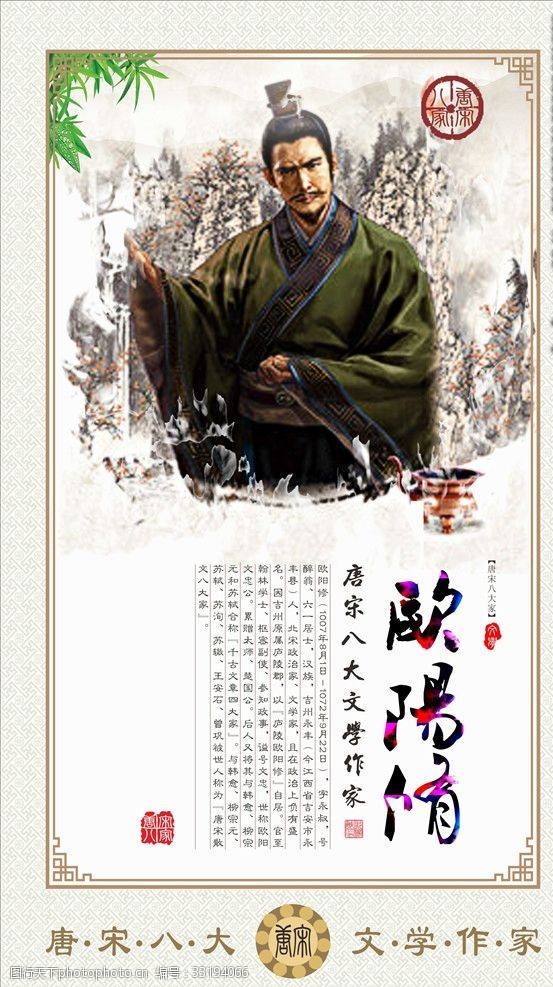 唐宋
八家
【唐宋八大家】
歐陽脩
唐宋八大文學作家
欧阳修（1007年8月1日－1072年9月22日），字永叔，号
醉翁、六一居士，汉族，吉州永丰（今江西省吉安市永
丰县）人，北宋政治家、文学家，且在政治上负有盛
名。因吉州原属庐陵郡，以『庐陵欧阳修』自居。官至
翰林学士、枢密副使、参知政事，谥号文忠，世称欧阳
文忠公。累赠太师、楚国公。后人又将其与韩愈、柳宗
元和苏轼合称『千古文章四大家』。与韩愈、柳宗元、
苏轼、苏洵、苏辙、王安石、曾巩被世人称为『唐宋散
文八大家』。
唐·宋·八·大 唐宋 文·学·作·家
图行天下photophoto.cn 编号：33194066